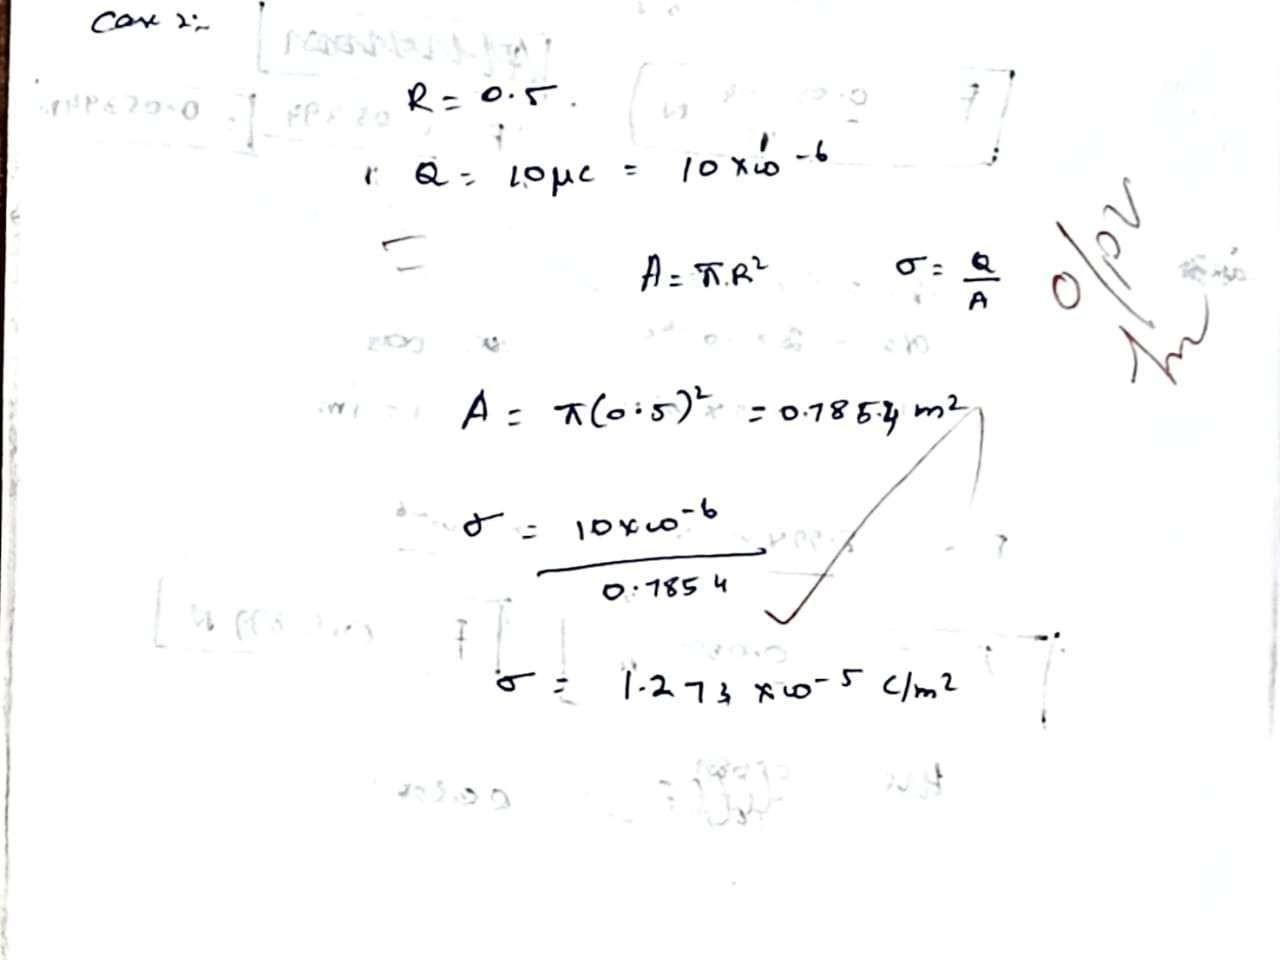 Case 2:-
R = 0.5.
Q = 10μc = 10 x10-6
A = π.R² σ = Q/A
A = π(0.5)² = 0.7854 m²
σ = 10x10-6
0.7854
σ = 1.273 x10-5 C/m²